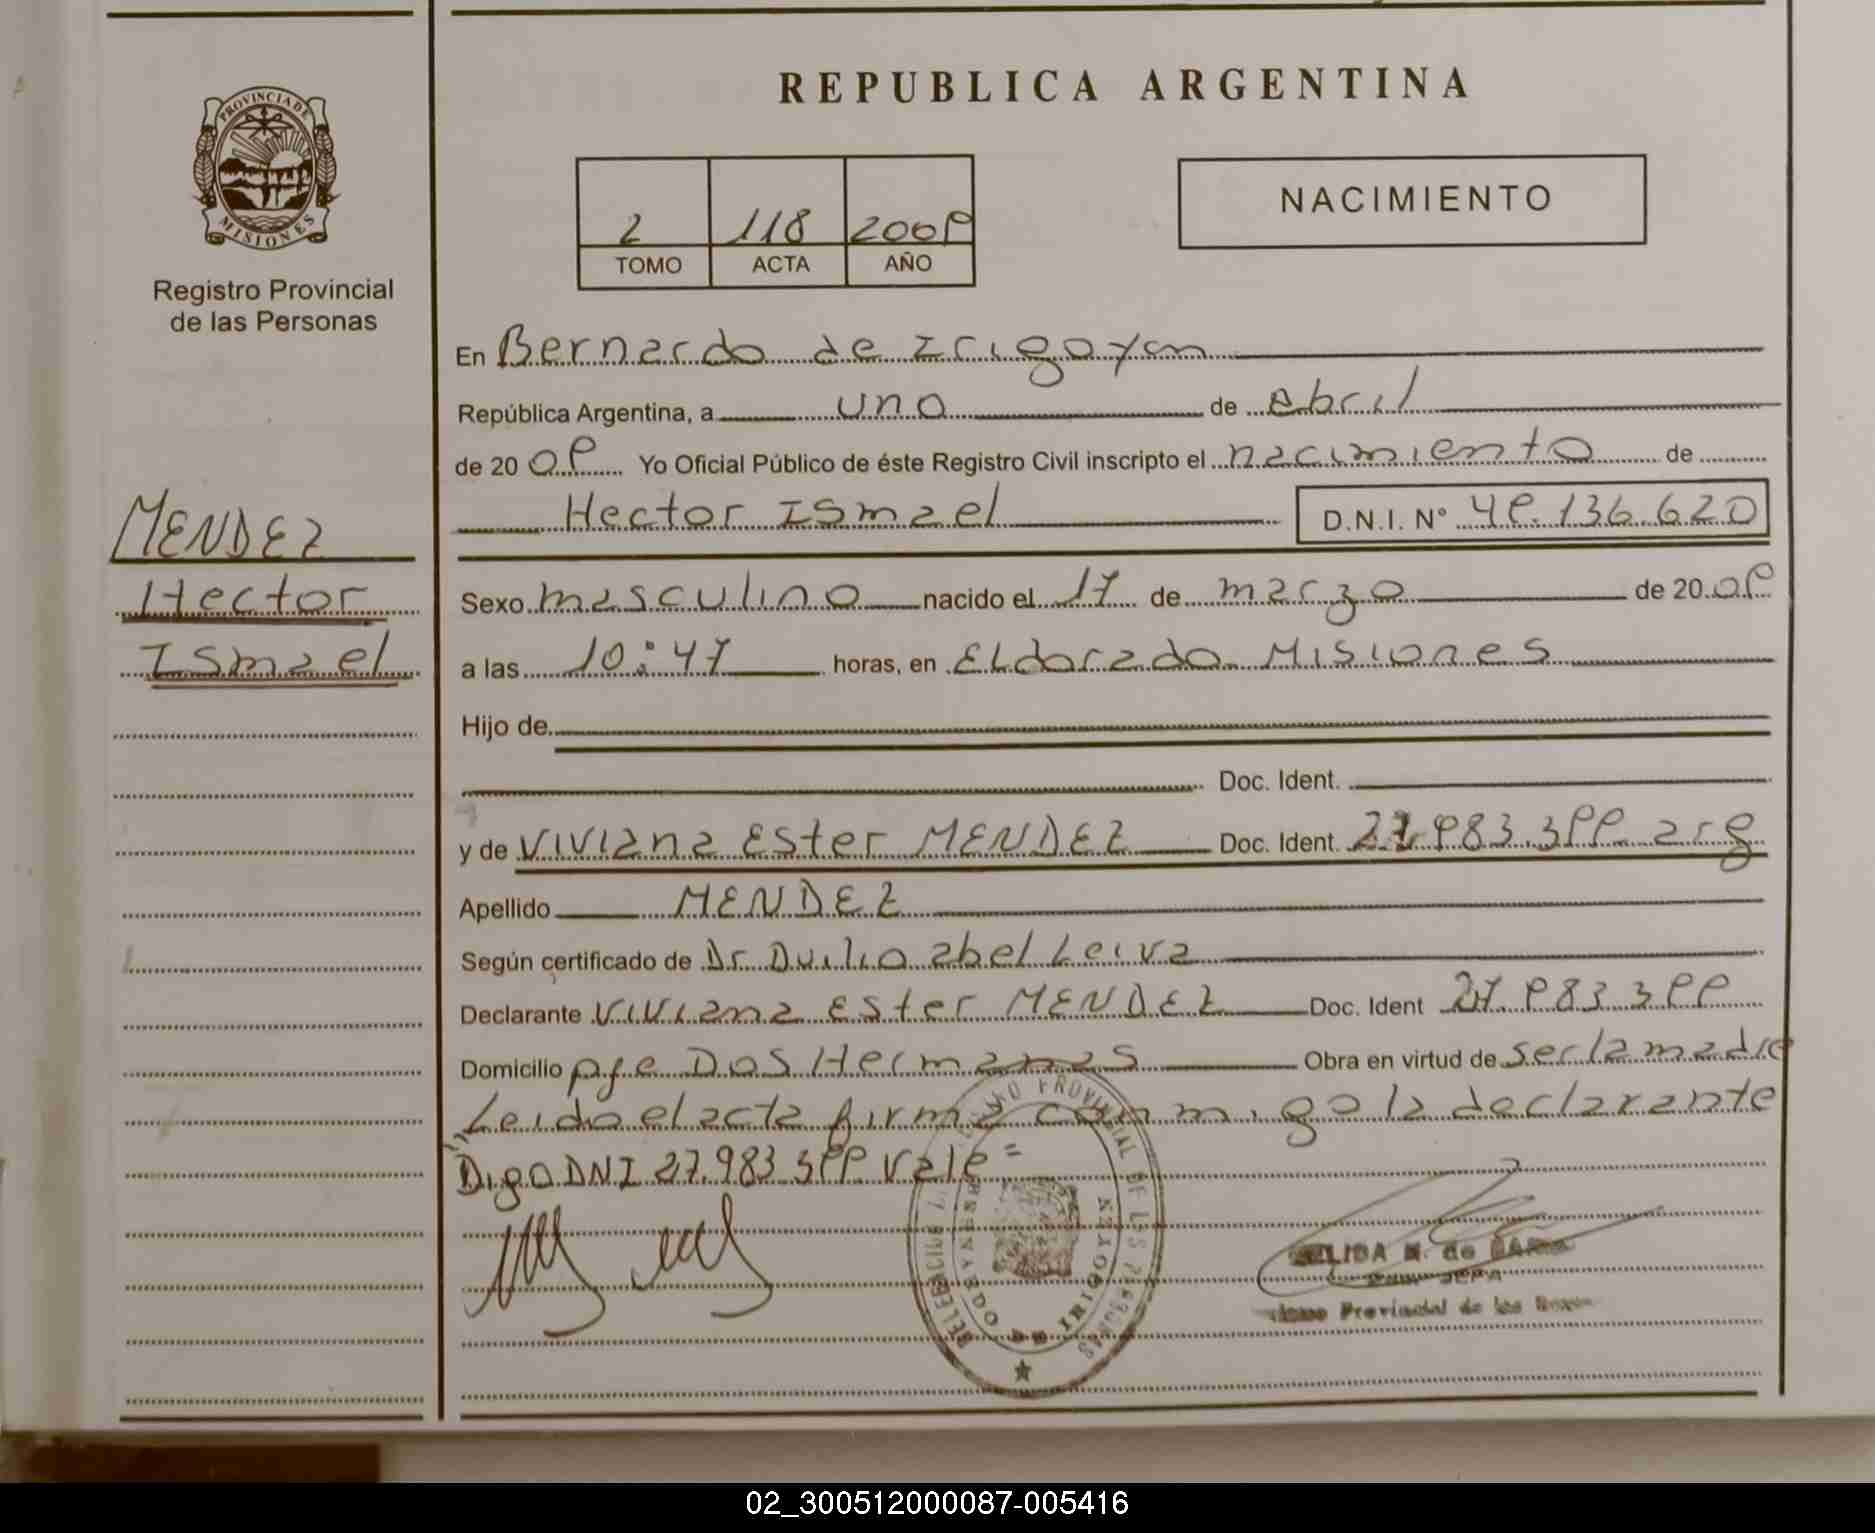 REPUBLICA ARGENTINA
PROVINCIA DE MISIONES
Registro Provincial
de las Personas
2 118 2009
TOMO ACTA AÑO
NACIMIENTO
En Bernardo de Irigoyen
República Argentina, a uno de abril
de 2009 Yo Oficial Público de éste Registro Civil inscripto el nacimiento de
Hector Ismael D.N.I. Nº 49.136.620
MENDEZ
Hector
Ismael
Sexo masculino nacido el 17 de marzo de 2009
a las 10:47 horas, en Eldorado Misiones
Hijo de
Doc. Ident.
y de Viviana Ester MENDEZ Doc. Ident. 27.983.399 arg
Apellido MENDEZ
Según certificado de Dr Duilio abel Leiva
Declarante Viviana Ester MENDEZ Doc. Ident 27.983 399
Domicilio pje Dos Hermanas Obra en virtud de ser la madre
Leido el acta firma conmigo la declarante
Digo DNI 27.983 399 Vale =
REGISTRO PROVINCIAL DE LAS PERSONAS
BERNARDO DE IRIGOYEN
Provincial de las
02_300512000087-005416